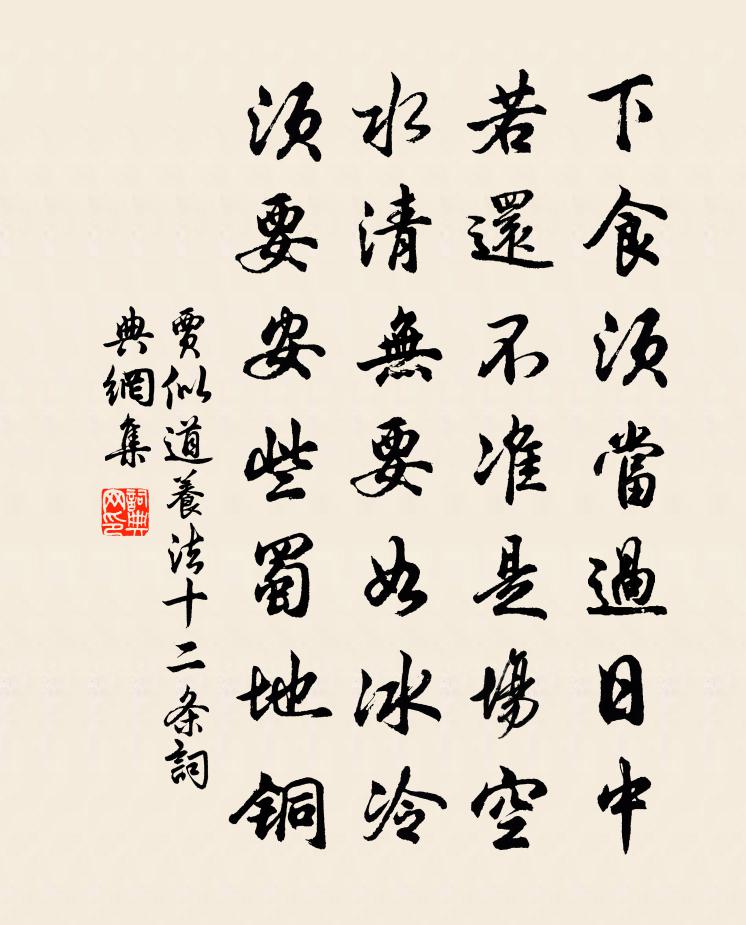 下食須當過日中
若還不准是場空
水清無要如冰冷
須要安些蜀地銅
賈似道養法十二条詞
典網集
詞典网印